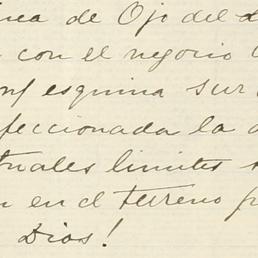 nea de Ojo del d
con el negocio
esquina sur
feccionada la
tuales limites
en el terreno p
Dios!